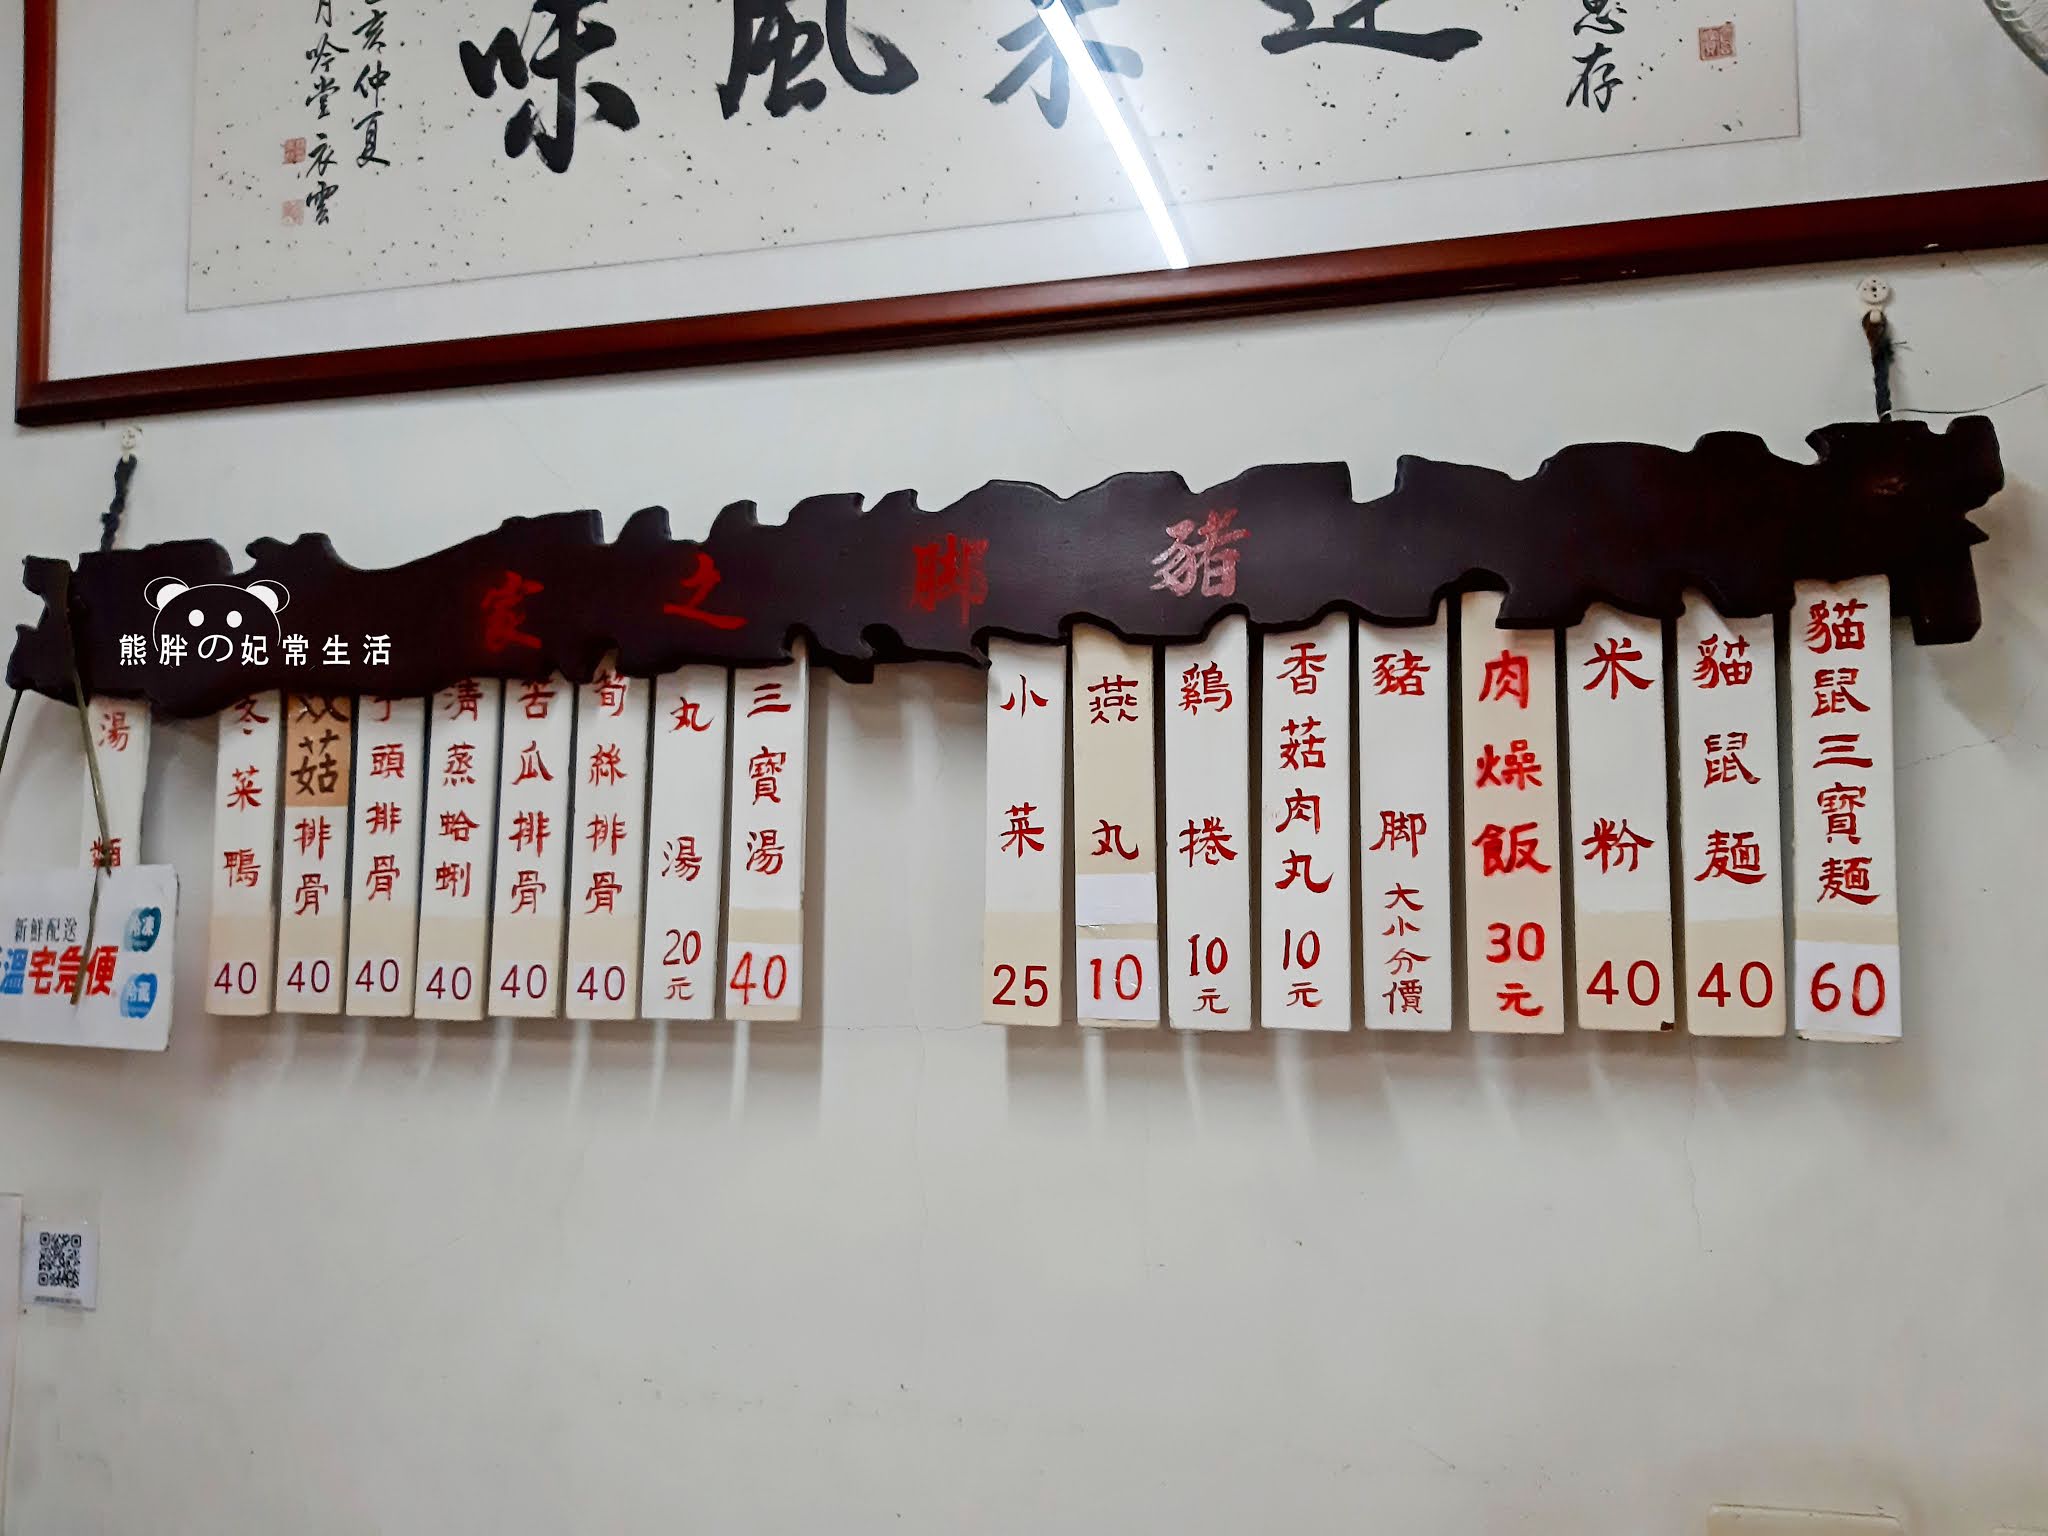 味風來
思存
亥仲夏
月吟堂衣雲
豬脚之家
貓鼠三寶麵 60
貓鼠麵 40
米粉 40
肉燥飯 30元
豬脚 大小分價
香菇肉丸 10元
鷄捲 10元
燕丸 10
小菜 25
三寶湯 40
丸湯 20元
筍絲排骨 40
苦瓜排骨 40
清蒸蛤蜊 40
芋頭排骨 40
双菇排骨 40
冬菜鴨 40
湯麵
熊胖の妃常生活
新鮮配送
溫宅急便
冷凍
冷藏